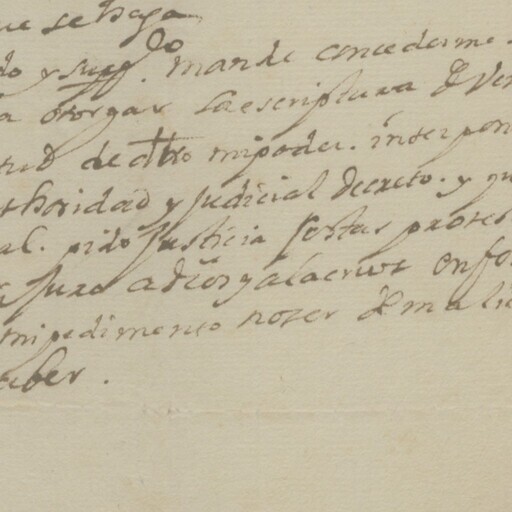 ue se haga
do y supp.do mande concederme
a otorgar la escriptura de Ven
tud de dtro mi poder. interpon
thoridad y Judicial Decreto. y
al. pido Justicia Costas protes
Juro a dios y a la cruz en fo
mpedimento no ser de mali
aber.